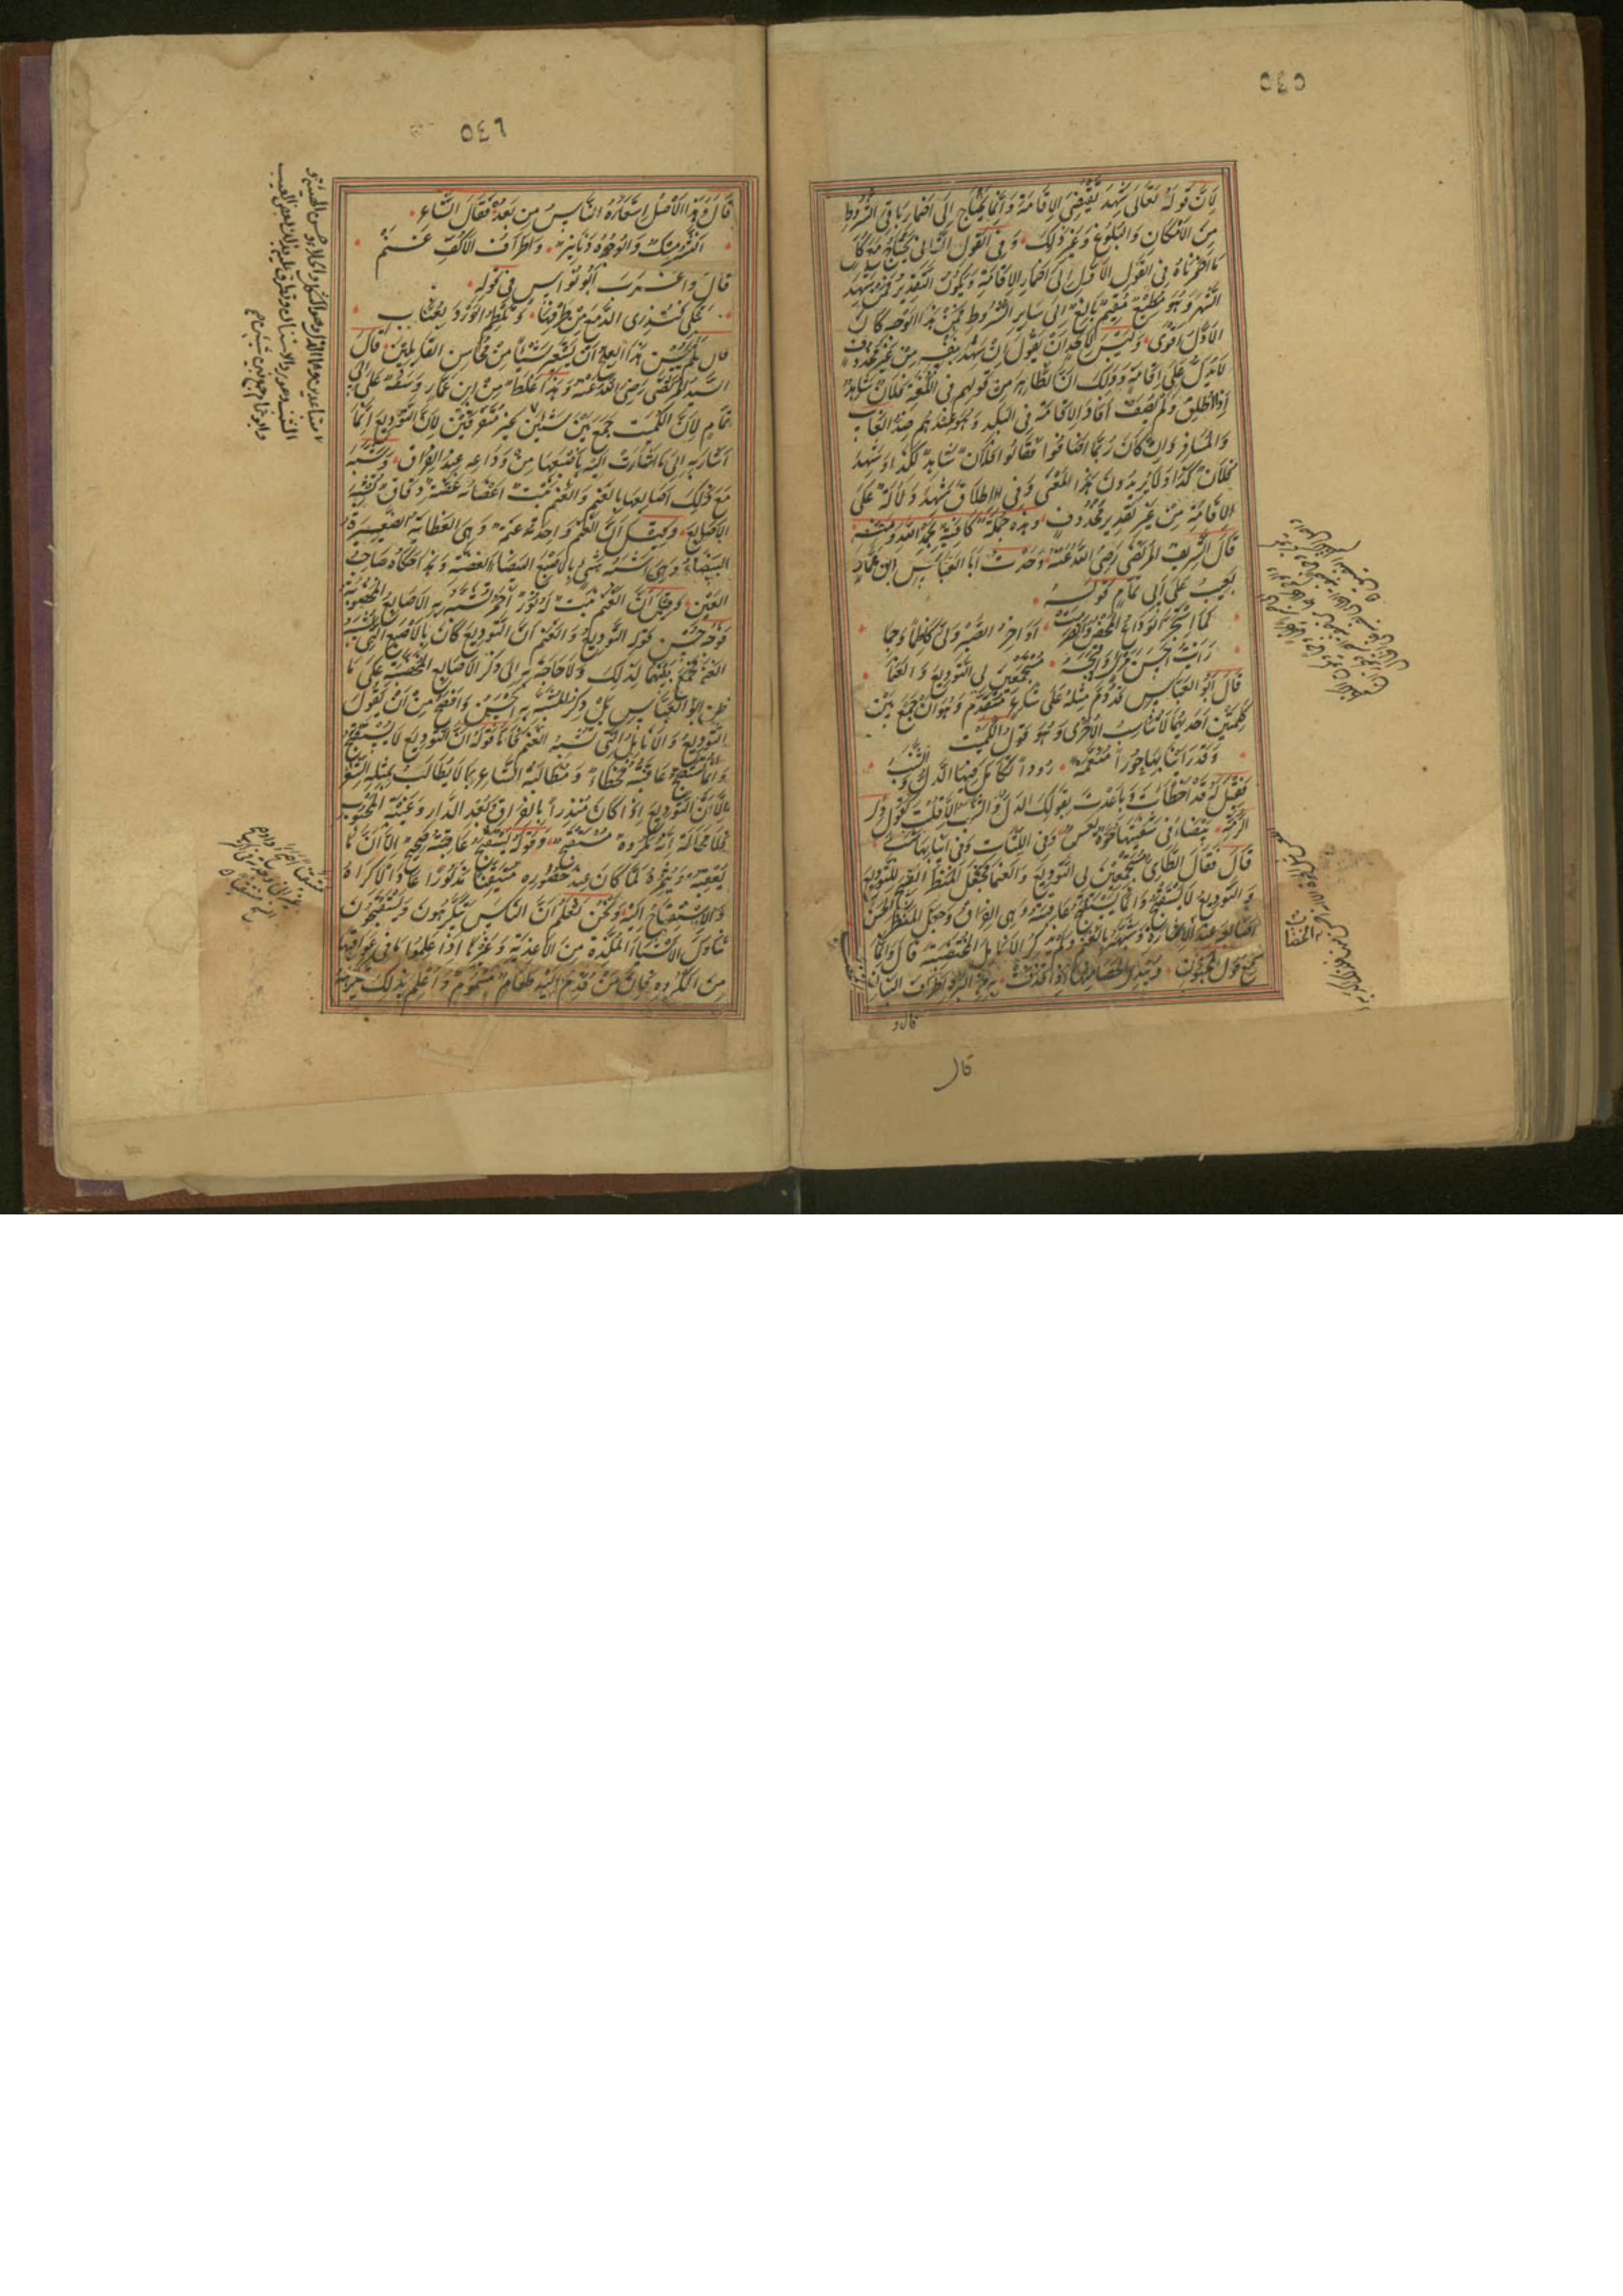 ٥٤٥
لِاَنَّ قَوْلَهُ تَعَالٰى شَهِدَ يَقْتَضِى الاِقَامَةَ وَاِنَّمَا يَحْتَاجُ اِلٰى اِضْمَارِ بَاقِى الشُّرُوطِ
مِنَ الاِمْكَانِ وَالْبُلُوغِ وَغَيْرِ ذٰلِكَ وَفِى القَوْلِ الثَّانِى يَحْتَاجُ مَعَ كُلِّ
مَا اَضْمَرْنَاهُ فِى القَوْلِ الاَوَّلِ اِلٰى اِضْمَارِ الاِقَامَةِ وَيَكُونُ التَّقْدِيرُ فَمَنْ شَهِدَ
الشَّهْرَ وَهُوَ مُطِيقٌ مُقِيمٌ بَالِغٌ اِلٰى سَايِرِ الشُّرُوطِ فَمِنْ هٰذَا الوَجْهِ كَانَ
الاَوَّلُ اَقْوٰى وَلَيْسَ لِاَحَدٍ اَنْ يَقُولَ اِنَّ شَهِدَ بِنَفْسِهِ مِنْ غَيْرِ مَحْذُوفٍ
لَا يَدُلُّ عَلٰى اِقَامَةٍ وَذٰلِكَ اَنَّ الظَّاهِرَ مِنْ قَوْلِهِم فِى اللُّغَةِ فُلَانٌ شَاهِدٌ
اِذَا اُطْلِقَ وَلَمْ يُضَفْ اَفَادَ الاِقَامَةَ فِى البَلَدِ وَهُوَ عِنْدَهُم ضِدُّ الغَايِبِ
وَالْمُسَافِرِ وَاِنْ كَانَ رُبَّمَا اَضَافُوا فَقَالُوا فُلَانٌ شَاهِدٌ لِكَذَا وَشَهِدَ
فُلَانٌ كَذَا وَلَا يُرِيدُونَ هٰذَا المَعْنٰى وَفِى اِطْلَاقِ شَهِدَ دَلَالَةٌ عَلَى
الاِقَامَةِ مِنْ غَيْرِ تَقْدِيرِ مَحْذُوفٍ وَهٰذِهِ جُمْلَةٌ كَافِيَةٌ بِحَمْدِ اللهِ وَمَنِّهِ
قَالَ الشَّرِيفُ المُرْتَضٰى رَضِىَ اللهُ عَنْهُ وَجَدْتُ اَبَا العَبَّاسِ ابْنَ عَمَّارٍ
يَعِيبُ عَلٰى اَبِى تَمَّامٍ قَوْلَهُ
لَمَّا اسْتَحَرَّ الوَدَاعُ المَحْضُ وَانْصَرَمَتْ اَوَاخِرُ الصَّبْرِ وَلّٰى كَاظِمًا وَجِمَا
رَاَيْتُ اَحْسَنَ مَرْئِىٍّ وَاَقْبَحَهُ مُسْتَجْمِعَيْنِ لِى التَّوْدِيعَ وَالعَنَمَا
قَالَ اَبُو العَبَّاسِ قَدْ ذُمَّ مِثْلُهُ عَلٰى شَاعِرٍ مُتَقَدِّمٍ وَهُوَ اَنْ جَمَعَ بَيْنَ
كَلِمَتَيْنِ اِحْدٰيهُمَا لَا تُنَاسِبُ الاُخْرٰى وَهُوَ قَوْلُ الكُمَيْتِ
وَقَدْ رَاَيْنَا بِهَا حُورًا مُنَعَّمَةً رُوْدًا تَكَامَلَ فِيهَا الدَّلُّ وَالشَّنَبُ
فَقِيلَ لَهُ قَدْ اَخْطَأْتَ وَبَاعَدْتَ بِقَوْلِكَ الدَّلُّ وَالشَّنَبُ اَلَا قُلْتَ كَقَوْلِ ذِى
الرُّمَّةِ بَيْضَاءُ فِى شَفَتَيْهَا حُوَّةٌ لَعَسٌ وَفِى اللِّثَاتِ وَفِى اَنْيَابِهَا شَنَبُ
قَالَ فَقَالَ الطَّائِىُّ مُسْتَجْمِعَيْنِ لِى التَّوْدِيعَ وَالعَنَمَا فَجَعَلَ المَنْظَرَ القَبِيحَ لِلتَّوْدِيعِ
وَالتَّوْدِيعُ لَا يُسْتَقْبَحُ وَاِنَّمَا يُسْتَقْبَحُ عَاقِبَتُهُ وَهِىَ الفِرَاقُ وَجَعَلَ المَنْظَرَ الحَسَنَ
اَصَابِعَهُ عِنْدَ الاِشَارَةِ وَشَبَّهَهُ بِالعَنَمِ وَلَمْ يَذْكُرِ الاَنَامِلَ المُخْتَضَبَةَ قَالَ وَاِنَّمَا
سَمِعَ قَوْلَ المَجْنُونِ
قال و
قال
٥٤٦
قَالَ وَهٰذَا الاَصْلُ اسْتَعَارَهُ النَّاسُ مِنْ بَعْدُ فَقَالَ الشَّاعِرُ
النَّشْرُ مِسْكٌ وَالوُجُوهُ دَنَانِيرٌ وَاَطْرَافُ الاَكُفِّ عَنَمْ
قَالَ وَاَغْرَبَ اَبُو نُوَاسٍ فِى قَوْلِهِ
تَبْكِى فَتُذْرِى الدَّمْعَ مِنْ طَرْفِهَا وَتَلْطِمُ الوَرْدَ بِعُنَّابِ
قَالَ فَلَمْ يُحْسِنْ هٰذَا العِلْجُ اَنْ يَسْتَعِيرَ شَيْئًا مِنْ مَحَاسِنِ القَايِلِينَ قَالَ
السَّيِّدُ المُرْتَضٰى رَضِىَ اللهُ عَنْهُ وَهٰذَا غَلَطٌ مِنِ ابْنِ عَمَّارٍ وَسَفَهٌ عَلٰى اَبِى
تَمَّامٍ لِاَنَّ الكُمَيْتَ جَمَعَ بَيْنَ شَيْئَيْنِ غَيْرِ مُتَفَرِّقَيْنِ لِاَنَّ التَّوْدِيعَ اِنَّمَا
اَشَارَ بِهِ اِلٰى مَا اَشَارَتْ اِلَيْهِ بِاِصْبَعِهَا مِنْ وَدَاعِهِ عِنْدَ الفِرَاقِ وَشَبَّهَ
مَعَ ذٰلِكَ اَصَابِعَهَا بِالعَنَمِ وَالعَنَمُ نَبْتٌ اَغْصَانُهُ غَضَّةٌ دِقَاقٌ تُشْبِهُ
الاَصَابِعَ وَقِيلَ اَنَّ العَنَمَ وَاحِدَتُهُ عَنَمَةٌ وَهِىَ العَظَايَةُ الصَّغِيرَةُ
البَيْضَاءُ وَهِىَ اَشْبَهُ شَىْءٍ بِالاَصَابِعِ البَيْضَاءِ الغَضَّةِ وَهٰذَا حَكَاهُ صَاحِبُ
العَيْنِ وَقِيلَ اَنَّ العَنَمَ نَبْتٌ لَهُ نَوْرٌ اَحْمَرُ تُشَبَّهُ بِهِ الاَصَابِعُ المَخْضُوبَةُ
فَوَجْهُ حُسْنِ قَوْلِهِ التَّوْدِيعَ وَالعَنَمَ اَنَّ التَّوْدِيعَ كَانَ بِالاَصَابِعِ الَّتِى تُشْبِهُ
العَنَمَ فَجَمَعَ بَيْنَهُمَا لِذٰلِكَ وَلَا حَاجَةَ بِهِ اِلٰى ذِكْرِ الاَصَابِعِ المُخْتَضَبَةِ عَلٰى مَا
ظَنَّ اَبُو العَبَّاسِ بَلْ ذِكْرُ المُشَبَّهِ بِهِ اَحْسَنُ وَاَفْصَحُ مِنْ اَنْ يَقُولَ
التَّوْدِيعَ وَالاَنَامِلَ الَّتِى تُشْبِهُ العَنَمَ فَاَمَّا قَوْلُهُ اَنَّ التَّوْدِيعَ لَا يُسْتَقْبَحُ
وَاِنَّمَا يُسْتَقْبَحُ عَاقِبَتُهُ فَخَطَاءٌ وَمُطَالَبَةُ الشَّاعِرِ بِمَا لَا يُطَالَبُ بِمِثْلِهِ الشُّعَرَاءُ
لِاَنَّ التَّوْدِيعَ اِذَا كَانَ مُنْذِرًا بِالفِرَاقِ وَبُعْدِ الدَّارِ وَغَيْبَةِ المَحْبُوبِ
فَلَا مَحَالَةَ اَنَّهُ مَكْرُوهٌ مُسْتَقْبَحٌ وَقَوْلُهُ يُسْتَقْبَحُ عَاقِبَتُهُ صَحِيحٌ اِلَّا اَنَّ مَا
يُعْقِبُهُ وَيُثْمِرُهُ لَمَّا كَانَ عِنْدَ حُضُورِهِ مُتَيَقَّنًا مَذْكُورًا عَادَ الاِكْرَاهُ
وَالاِسْتِقْبَاحُ اِلَيْهِ وَنَحْنُ نَعْلَمُ اَنَّ النَّاسَ يَتَكَرَّهُونَ وَيَسْتَقْبِحُونَ
تَنَاوُلَ الاَشْيَاءِ المُلِذَّةِ مِنَ الاَغْذِيَةِ وَغَيْرِهَا اِذَا عَلِمُوا مَا فِى عَوَاقِبِهَا
مِنَ المَكْرُوهِ فَاِنَّ مَنْ قُدِّمَ اِلَيْهِ طَعَامٌ مَسْمُومٌ وَاُعْلِمَ بِذٰلِكَ يَتَكَرَّهُهُ